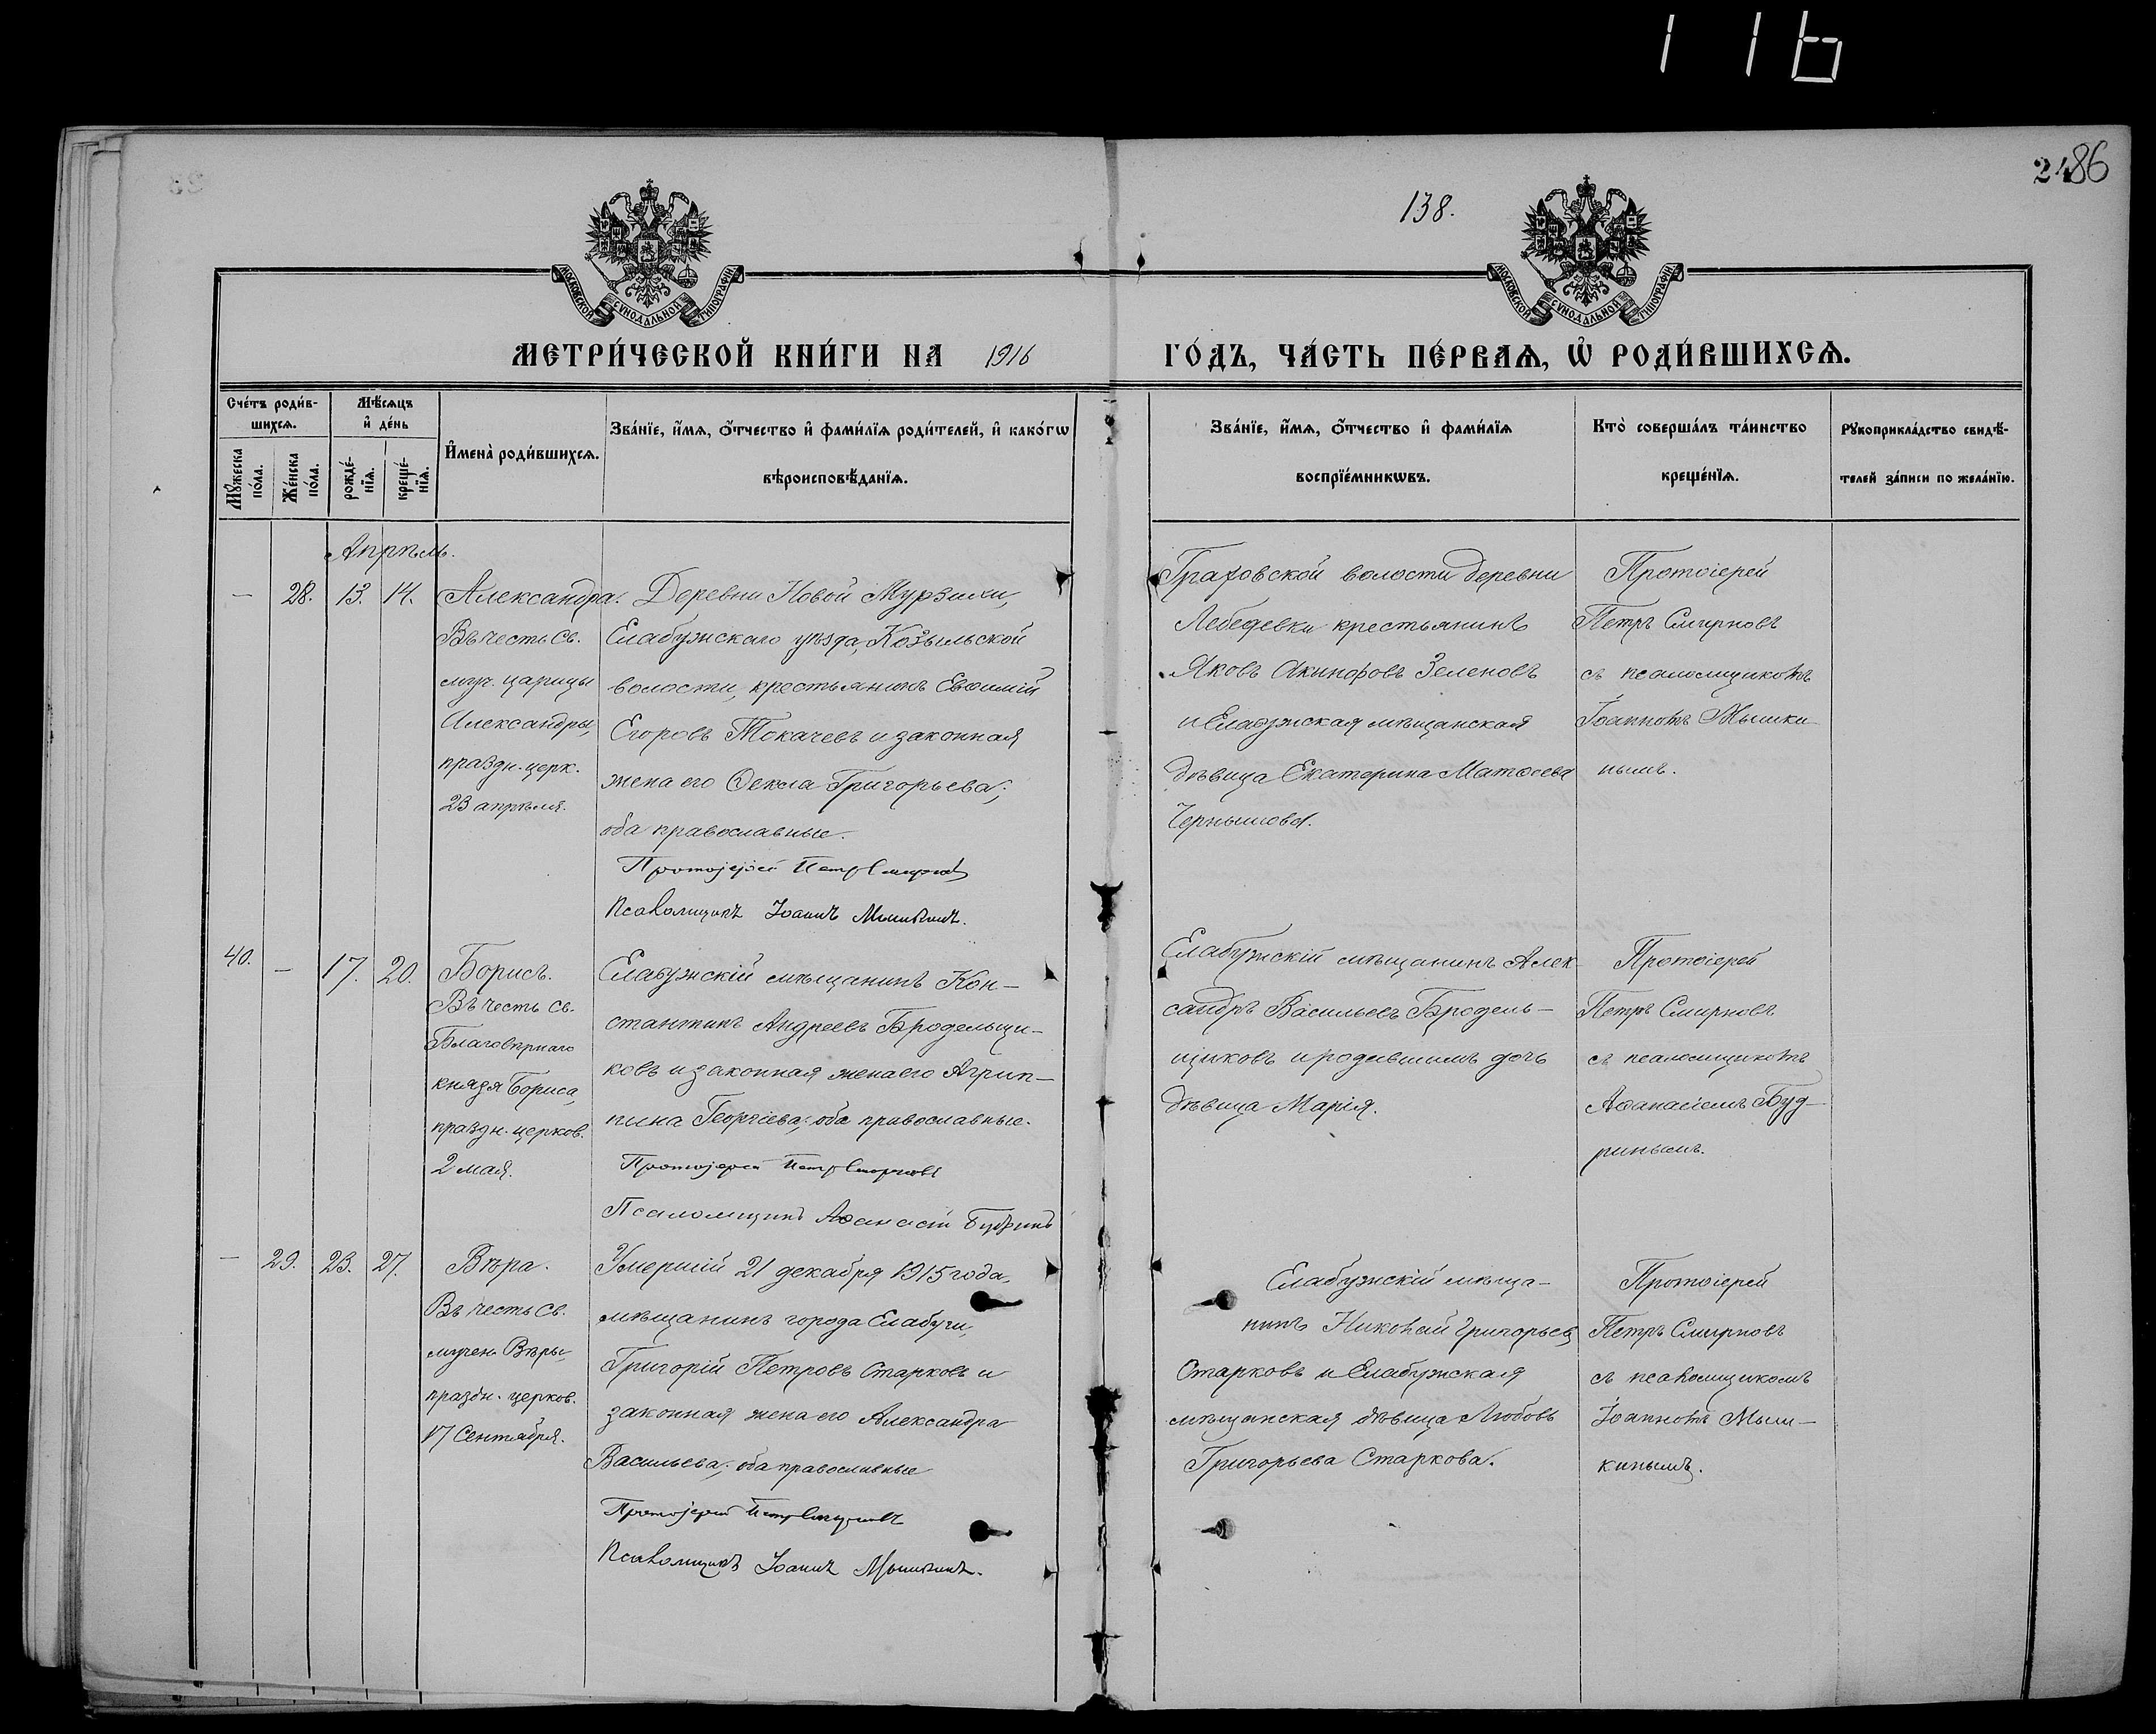 116
2486
138.
МОСКОВСКОЙ СѴНОДАЛЬНОЙ ТИПОГРАФІИ
МОСКОВСКОЙ СѴНОДАЛЬНОЙ ТИПОГРАФІИ
МЕТРИ́ЧЕСКОЙ КНИ́ГИ НА 1916 ГО́ДЪ, ЧА́СТЬ ПЕ́РВАѦ, Ѡ҆ РОДИ́ВШИХСѦ.
Сче́тъ роди́в-
шихсѧ.
Мѣ́сѧцъ
и҆ де́нь
Мꙋ́жеска
по́ла.
Же́нска
по́ла.
рожде́-
нїѧ.
креще́-
нїѧ.
И҆мена̀ роди́вшихсѧ.
Зва́нїе, и҆́мѧ, ѻ҆́тчество и҆ фами́лїѧ роди́телей, и҆ како́гѡ
вѣроисповѣ́данїѧ.
Зва́нїе, и҆́мѧ, ѻ҆́тчество и҆ фами́лїѧ
воспрїе́мникѡвъ.
Кто̀ соверша́лъ та́инство
креще́нїѧ.
Рꙋкоприкла́дство свидѣ́-
телей за́писи по жела́нїю.
Апрѣль.
— 28. 13. 14. Александра.
Въ честь Св.
муч. царицы
Александры,
праздн. церк.
23 апрѣля.
Деревни Новой Мурзихи,
Елабужскаго уѣзда, Козыльской
волости, крестьянинъ Евѳимій
Егоровъ Токачевъ и законная
жена его Ѳекла Григорьева;
оба православные.
Протоіерей Петръ Смирновъ
Псаломщикъ Іоаннъ Мышкинъ.
Граховской волости деревни
Лебедевки крестьянинъ
Яковъ Акинфовъ Зеленовъ
и Елабужская мѣщанская
дѣвица Екатерина Матѳеева
Чернышова.
Протоіерей
Петръ Смирновъ
съ псаломщикомъ
Іоанномъ Мышки
нымъ.
40. — 17. 20. Борисъ.
Въ честь Св.
Благовѣрнаго
князя Бориса,
праздн. церков.
2 мая.
Елабужскій мѣщанинъ Кон-
стантинъ Андреевъ Бродельщи-
ковъ и законная жена его Агрип-
пина Георгіева; оба православные.
Протоіерей Петръ Смирновъ
Псаломщикъ Аѳанасій Будринъ
Елабужскій мѣщанинъ Алек-
сандръ Васильевъ Бродель-
щиковъ и родившимъ дочь
дѣвица Марія.
Протоіерей
Петръ Смирновъ
съ псаломщикомъ
Аѳанасіемъ Буд-
ринымъ.
— 29. 23. 27. Вѣра.
Въ честь Св.
мучен. Вѣры,
праздн. церков.
17 Сентября.
Умершій 21 декабря 1915 года,
мѣщанинъ города Елабуги,
Григорій Петровъ Старковъ и
законная жена его Александра
Васильева; оба православные
Протоіерей Петръ Смирновъ
Псаломщикъ Іоаннъ Мышкинъ.
Елабужскій мѣща-
нинъ Николай Григорьевъ
Старковъ и Елабужская
мѣщанская дѣвица Любовь
Григорьева Старкова.
Протоіерей
Петръ Смирновъ
съ псаломщикомъ
Іоанномъ Мыш-
кинымъ.